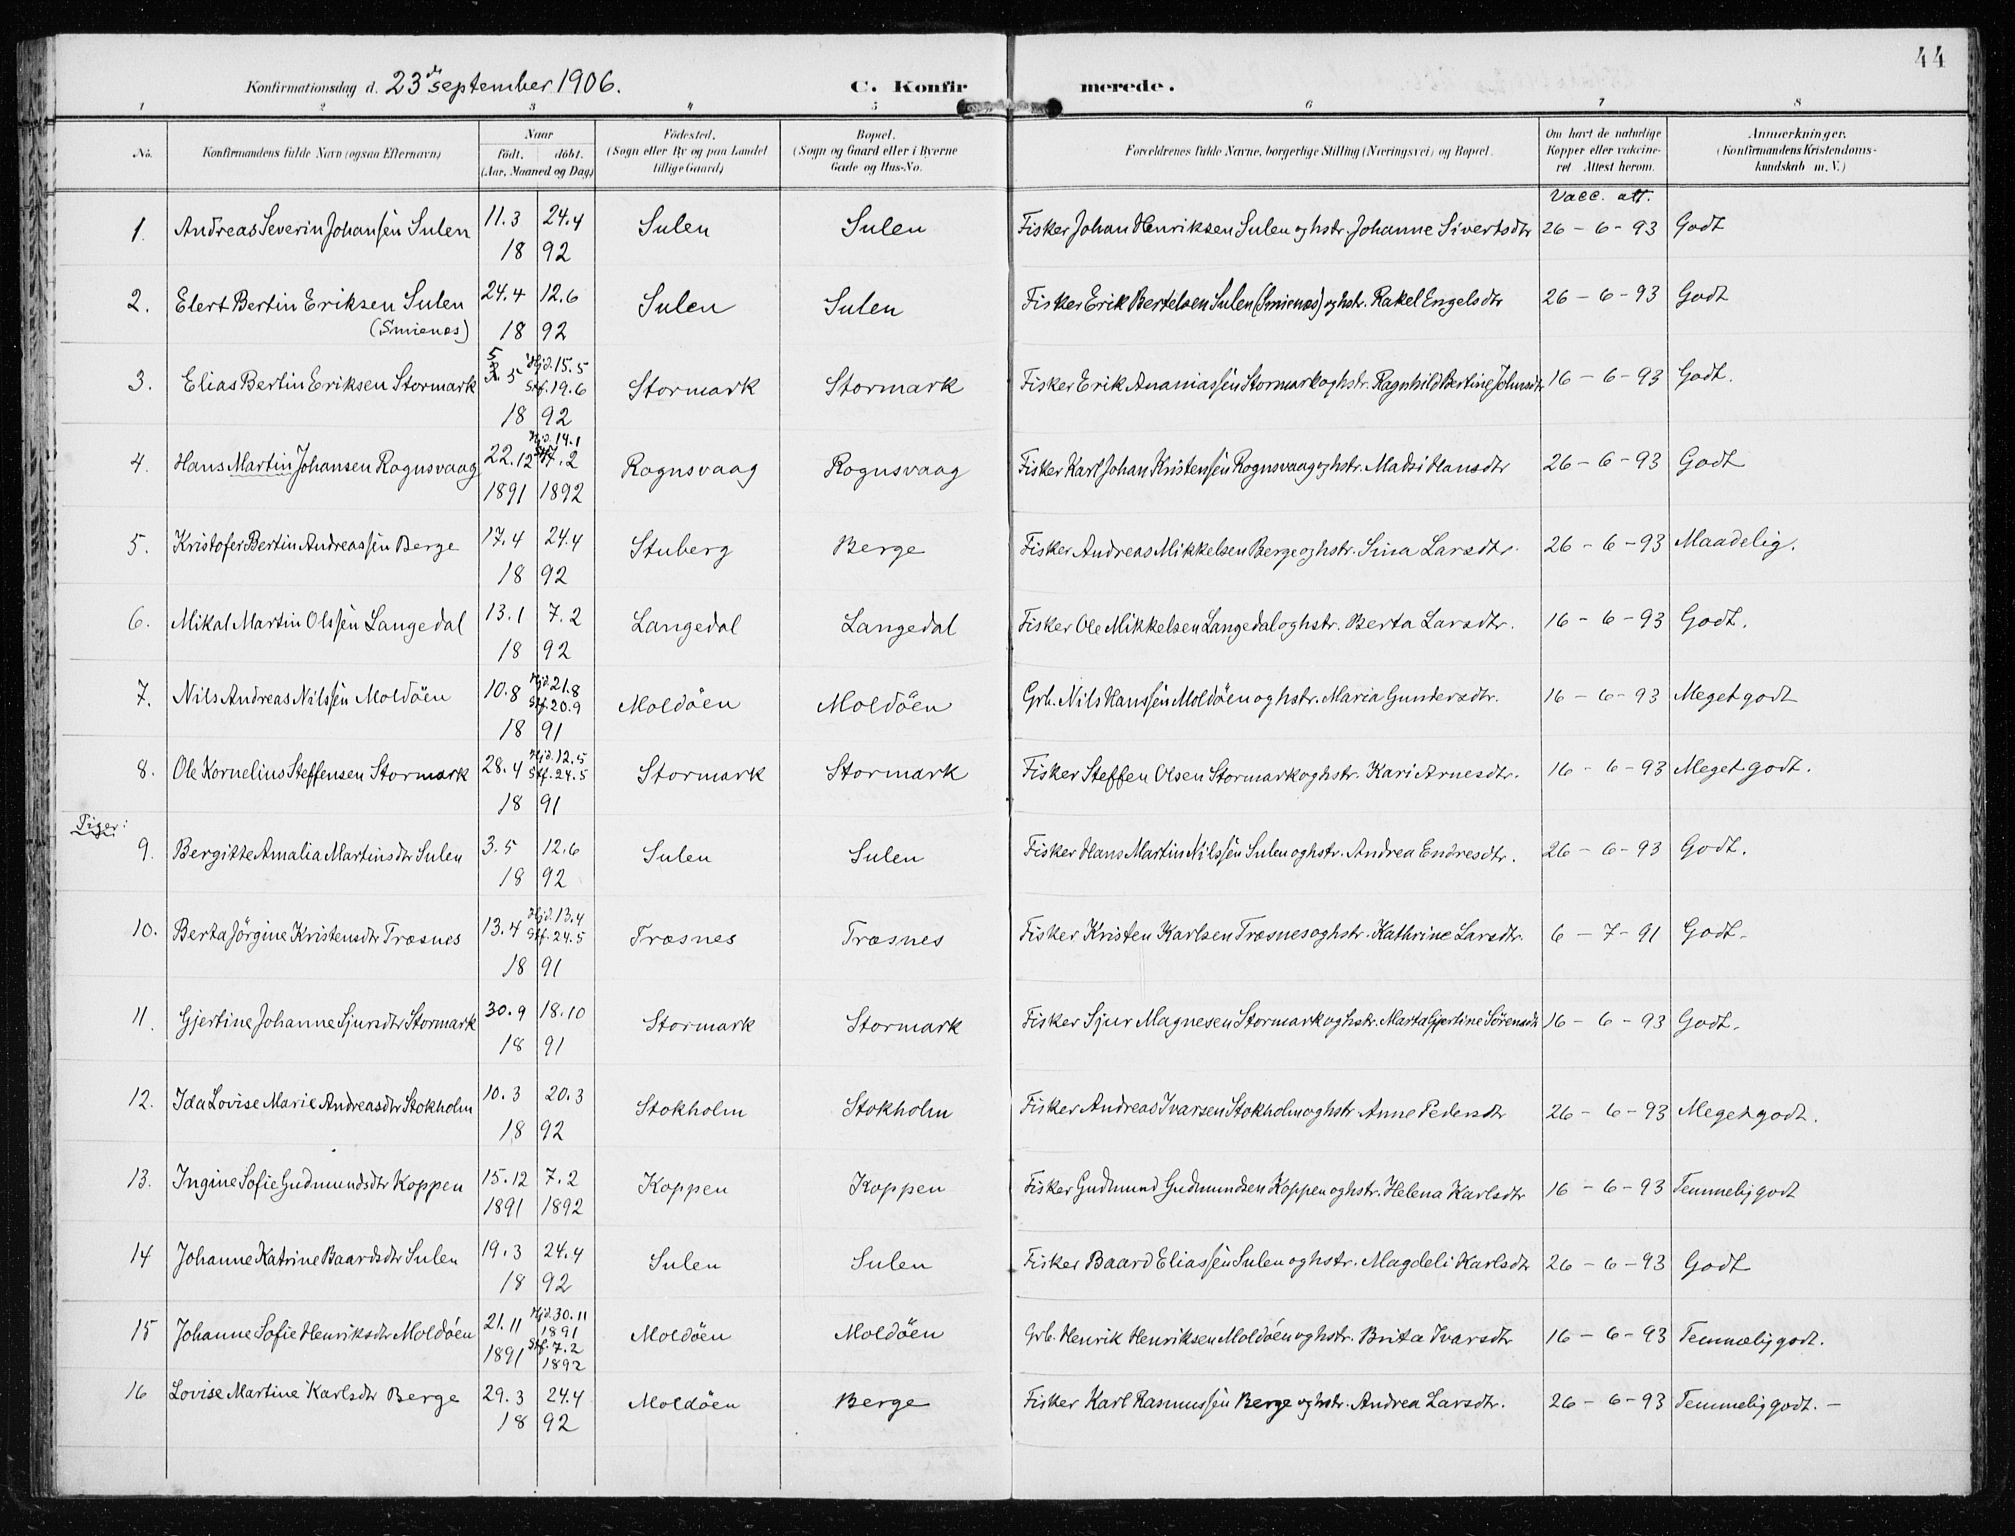 44
Konfirmationsdag d. 23de september 1906. C. Konfirmerede.
1 2 3 4 5 6 7 8
No. Konfirmandens fulde Navn (ogsaa Efternavn) Naar født. døbt. (Aar, Maaned og Dag) Fødested. (Sogn eller By og paa Landet tillige Gaard) Bopæl. (Sogn og Gaard eller i Byerne Gade og Hus-No. Forældrenes fulde Navne, borgerlige Stilling (Næringsvei) og Bopæl. Om havt de naturlige Kopper eller vakcineret Attest herom. Anmærkninger. (Konfirmandens Kristendomskundskab m. V.)
Vacc. att.
1. Andreas Severin Johansen Sulen 11.3 24.4 Sulen Sulen Fisker Johan Henriksen Sulen og hstr. Johanne Sivertsdtr 26 - 6 - 93 Godt
18 92
2. Elert Bertin Eriksen Sulen 24.4 12.6 Sulen Sulen Fisker Erik Bertelsen Sulen (Smienes) og hstr. Rakel Engelsdtr 26 - 6 - 93 Godt
(Smienes) 18 92
3. Elias Bertin Eriksen Stormark 5.5 Hjd. 15.5 Stf. 19.6 Stormark Stormark Fisker Erik Ananiassen Stormark og hstr. Ragnhild Bertine Johnsdtr 16 - 6 - 93 Godt.
18 92
4. Hans Martin Johansen Rognsvaag 22.12 Hjd. 14.1 Stf. 7.2 Rognsvaag Rognsvaag Fisker Karl Johan Kristensen Rognsvaag og hstr. Madsi Hansdtr 26 - 6 - 93 Godt
1891 1892
5. Kristofer Bertin Andreassen Berge 17.4 24.4 Stuberg Berge Fisker Andreas Mikkelsen Berge og hstr. Sina Larsdtr. 26 - 6 - 93 Maadelig.
18 92
6. Mikal Martin Olssen Langedal 13.1 7.2 Langedal Langedal Fisker Ole Mikkelsen Langedal og hstr. Berta Larsdtr. 16 - 6 - 93 Godt.
18 92
7. Nils Andreas Nilssen Moldöen 10.8 Hjd. 21.8 Stf. 20.9 Moldöen Moldöen Grb. Nils Hanssen Moldöen og hstr. Maria Gundersdtr. 16 - 6 - 93 Meget godt
18 91
8. Ole Kornelius Steffensen Stormark 28.4 Hjd. 12.5 Stf. 24.5 Stormark Stormark Fisker Steffen Olsen Stormark og hstr. Kari Arnesdtr. 16 - 6 - 93 Meget godt.
18 91
Piger:
9. Bergitte Amalia Martinsdtr Sulen 3.5 12.6 Sulen Sulen Fisker Hans Martin Nilssen Sulen og hstr. Andrea Endresdtr. 26 - 6 - 93 Godt.
18 92
10. Berta Jörgine Kristensdtr Træsnes 13.4 Hjd. 13.4 Stf. 24.5 Træsnes Træsnes Fisker Kristen Karlsen Træsnes og hstr. Kathrine Larsdtr. 6 - 7 - 91 Godt.
18 91
11. Gjertine Johanne Sjursdtr Stormark 30.9 18.10 Stormark Stormark Fisker Sjur Magnesen Stormark og hstr. Marta Gjertine Sörensdtr 16 - 6 - 93 Godt.
18 91
12. Ida Lovise Marie Andreasdtr Stokholm 10.3 20.3 Stokholm Stokholm Fisker Andreas Ivarsen Stokholm og hstr Anne Pedersdtr 26 - 6 - 93 Meget godt.
18 92
13. Ingine Sofie Gudmundsdtr Koppen 15.12 7.2 Koppen Koppen Fisker Gudmund Gudmundsen Koppen og hstr. Helena Karlsdtr 16 - 6 - 93 Temmelig godt
1891 1892
14 Johanne Katrine Baardsdtr Sulen 19.3 24.4 Sulen Sulen Fisker Baard Eliassen Sulen og hstr. Magdeli Karlsdtr 26 - 6 - 93 Godt
18 92
15 Johanne Sofie Henriksdtr Moldöen 21.11 1891 Hjd. 30.11 1891 Stf. 7.2 1892 Moldöen Moldöen Grb. Henrik Henriksen Moldöen og hstr. Brita Ivarsdtr 16 - 6 - 93 Temmelig godt.
16 Lovise Martine Karlsdtr Berge 29.3 24.4 Moldöen Berge Fisker Karl Rasmussen Berge og hstr. Andrea Larsdtr. 26 - 6 - 93 Temmelig godt. -
18 92